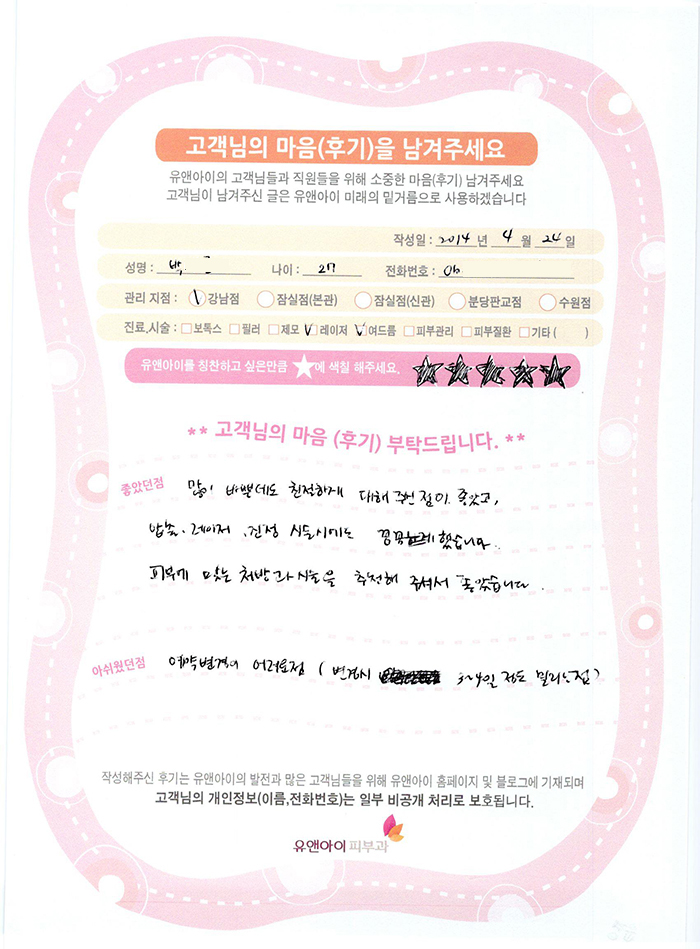 고객님의 마음(후기)을 남겨주세요
유앤아이의 고객님들과 직원들을 위해 소중한 마음(후기) 남겨주세요
고객님이 남겨주신 글은 유앤아이 미래의 밑거름으로 사용하겠습니다
작성일 : 2014 년 4 월 24 일
성명 : 박 나이 : 27 전화번호 : 01
관리 지점 : 강남점 잠실점(본관) 잠실점(신관) 분당판교점 수원점
진료,시술 : 보톡스 필러 제모 레이저 여드름 피부관리 피부질환 기타 ( )
유앤아이를 칭찬하고 싶은만큼 ★에 색칠 해주세요. ★★★★★
** 고객님의 마음 (후기) 부탁드립니다. **
좋았던점 많이 바쁜데도 친절하게 대해 주신 점이 좋았고,
레이저, 시술시에는 꼼꼼하게 했습니다.
피부에 맞는 처방과 시술을 추천해 주셔서 좋았습니다.
아쉬웠던점 예약변경이 어려운점 ( 변경시 3~4일 정도 밀리는점)
작성해주신 후기는 유앤아이의 발전과 많은 고객님들을 위해 유앤아이 홈페이지 및 블로그에 기재되며
고객님의 개인정보(이름,전화번호)는 일부 비공개 처리로 보호됩니다.
유앤아이피부과